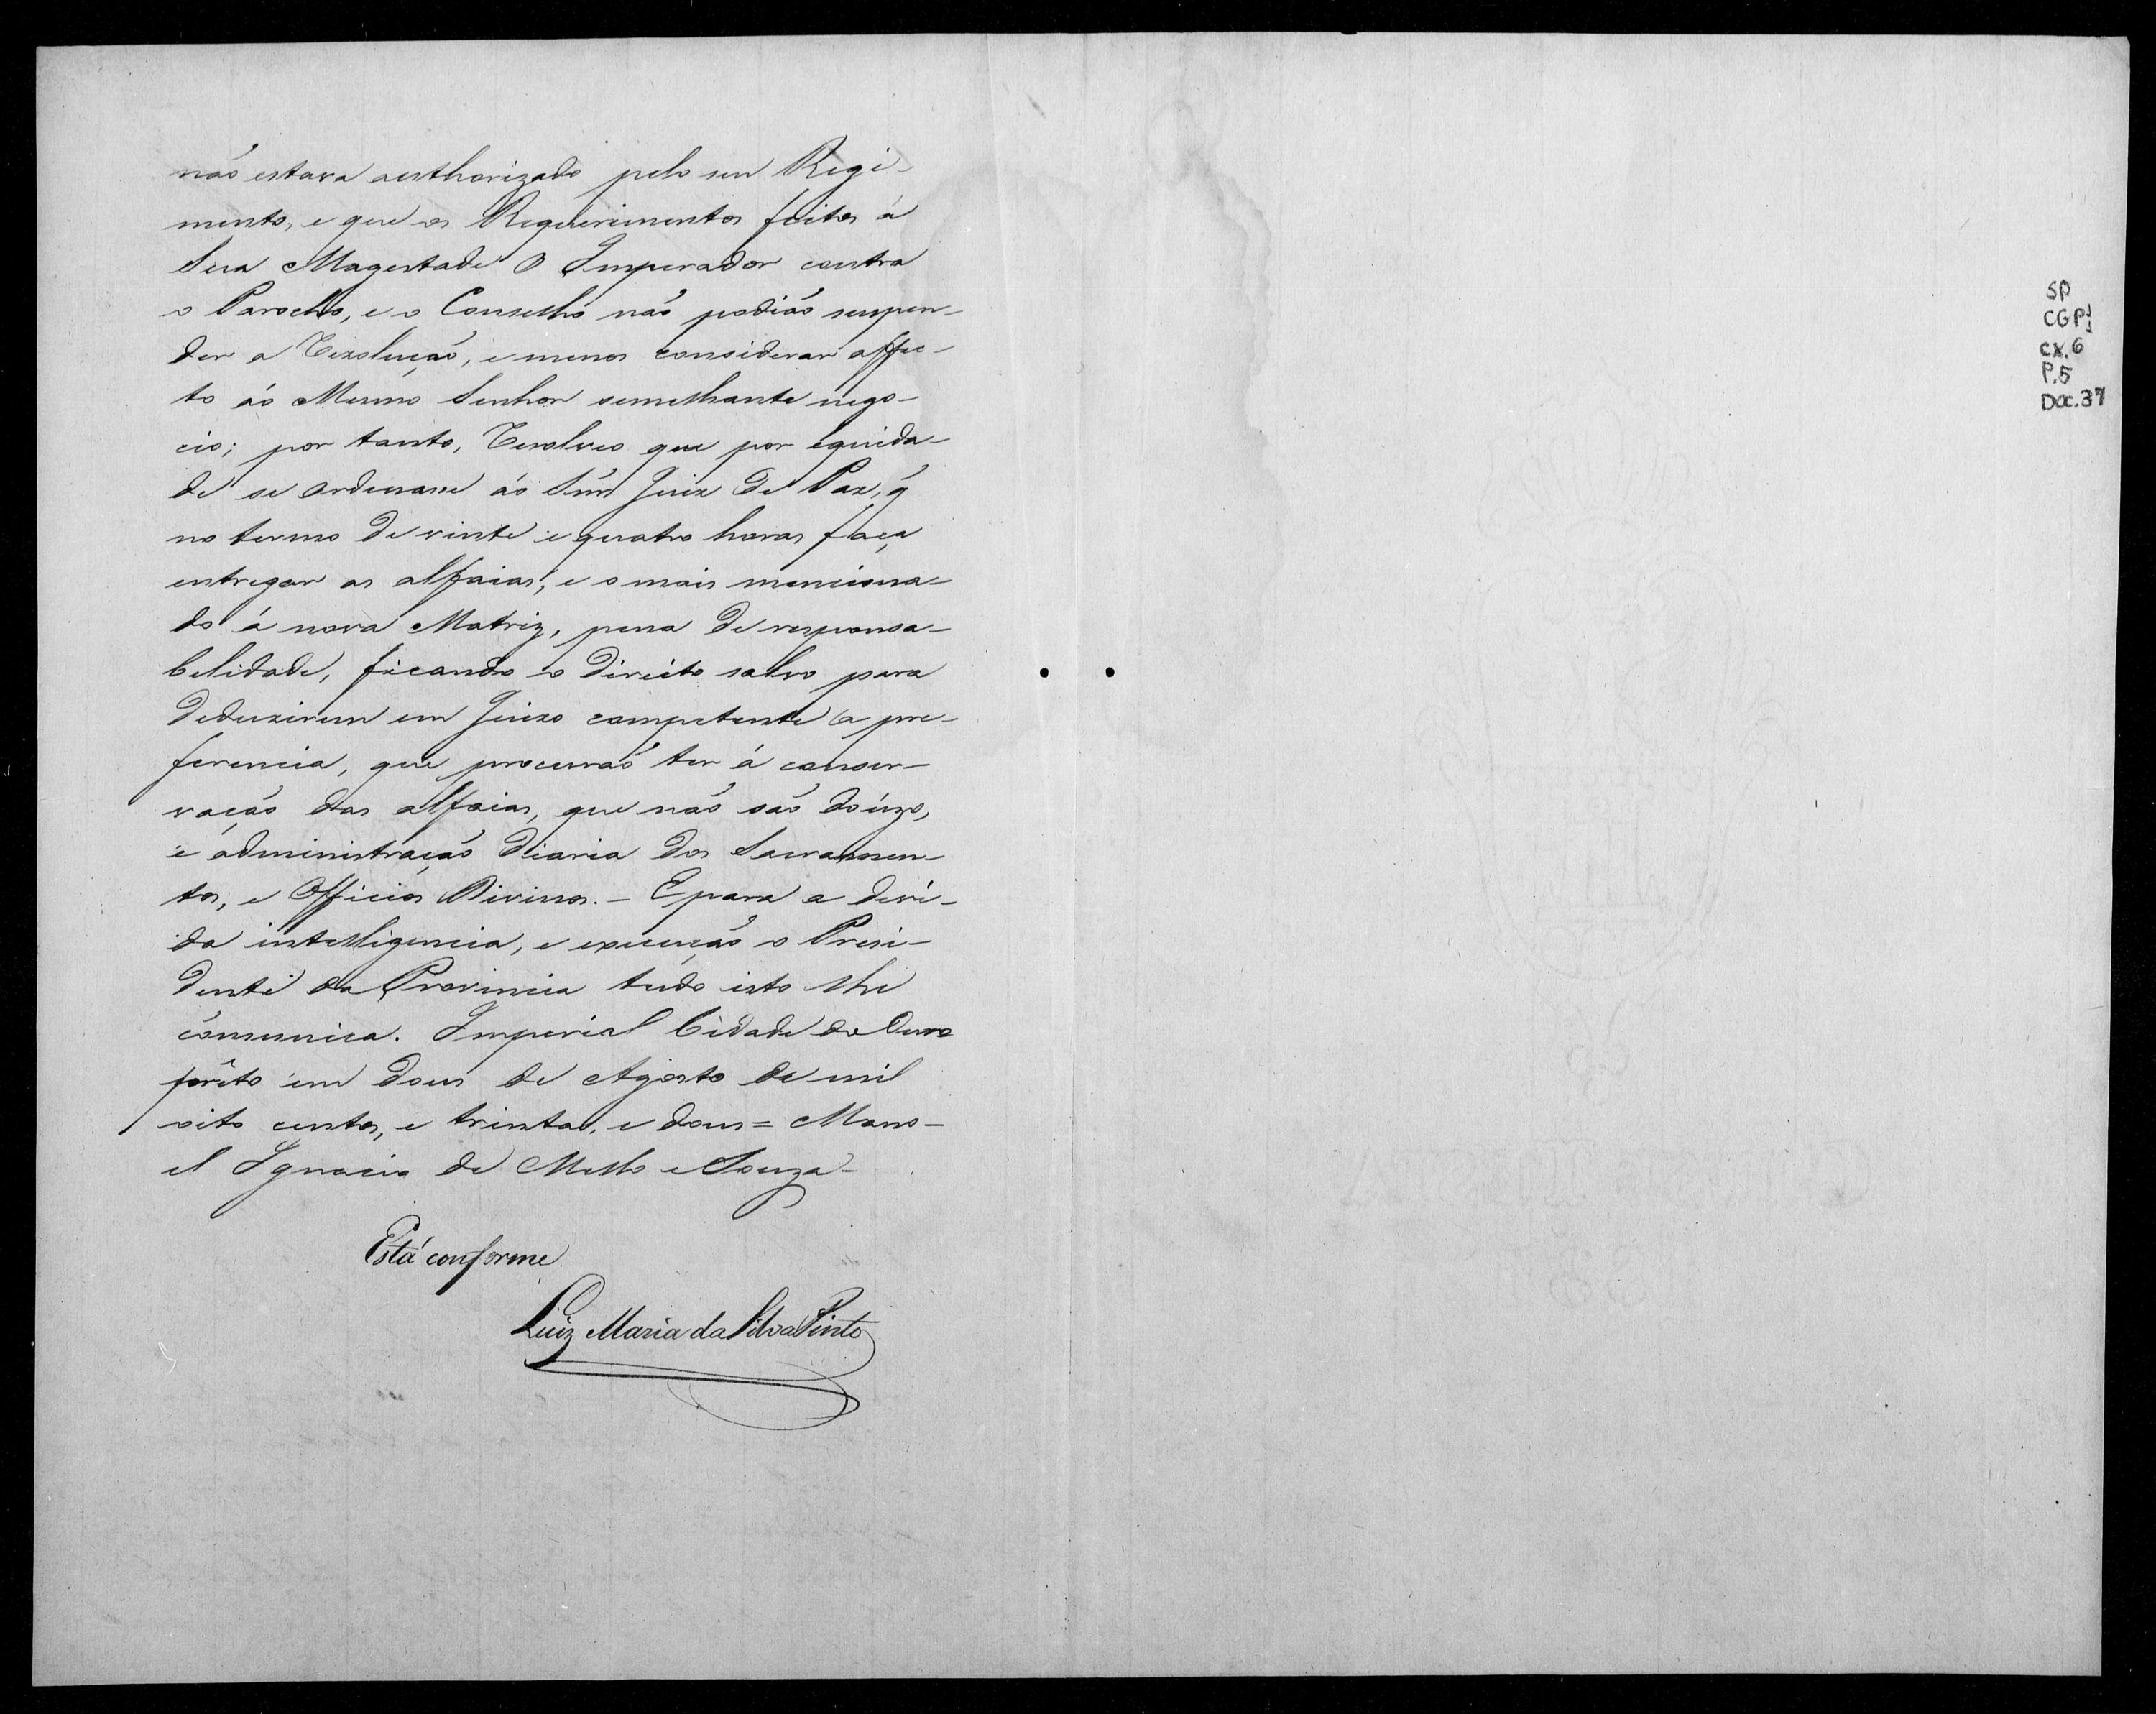 não estava authorizado pelo seu Regi-
mento, e que os Requerimentos feitos á
Sua Magestade O Imperador contra
o Parocho, e o Conselho não podião suspen-
der a Rezolução, e menos considerar affec-
to áo Mesmo Senhor semelhante nego-
cio; por tanto, Resolveo que por equida-
de se ordenasse áo Sũr Juiz de Paz, q̃
no termo de vinte e quatro horas faça
entregar as alfaias, e o mais menciona-
do á nova Matriz, pena de responsa-
belidade, ficando o Direito salvo para
deduzirem em Juizo competente a pre-
ferencia, que procurão ter á conser-
vação das alfaias, que não são do uzo,
e administração diaria dos Sacramen-
tos, e Officios Divinos. - E para a devi-
da intelligencia, e execução o Presi-
dente da Provincia tudo isto lhe
cõmunica. Imperial Cidade do Ouro
prêto em dous de Agosto de mil
oito centos, e trinta, e dous = Mano-
el Ignacio de Mello e Souza -
Está conforme
Luiz Maria da Silva Pinto
SP
CGP1
CX. 6
P. 5
DOC. 37